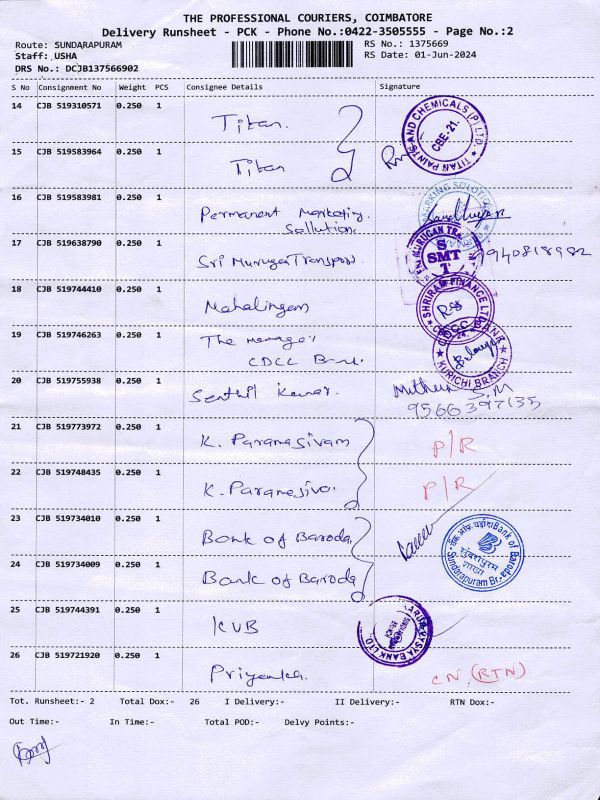 THE PROFESSIONAL COURIERS, COIMBATORE
Delivery Runsheet - PCK - Phone No.:0422-3505555 - Page No.:2
Route: SUNDARAPURAM RS No.: 1375669
Staff: USHA RS Date: 01-Jun-2024
DRS No.: DCJB137566902
S No Consignment No Weight PCS Consignee Details Signature
14 CJB 519310571 0.250 1 Titan. TITAN PAINTS AND CHEMICALS (P) LTD. CBE-21.
15 CJB 519583964 0.250 1 Titan
16 CJB 519583981 0.250 1 Permanent Marketing
Sollution.
17 CJB 519638790 0.250 1 Sri Murugan Transport S SMT T 9940818982
18 CJB 519744410 0.250 1 Mahalingam SHRIRAM FINANCE LTD
19 CJB 519746263 0.250 1 The manager
CDCC Bank. KURICHI BRANCH
20 CJB 519755938 0.250 1 Senthil Kumar. Mithun S.M
9566397135
21 CJB 519773972 0.250 1 K. Paramasivam P/R
22 CJB 519748435 0.250 1 K. Paramesiva. P/R
23 CJB 519734010 0.250 1 Bank of Baroda बैंक ऑफ़ बड़ौदा Bank of Baroda
सुंदरापुरम शाखा
Sundarapuram Br.
24 CJB 519734009 0.250 1 Bank of Baroda
25 CJB 519744391 0.250 1 KVB KARUR VYSYA BANK LTD
26 CJB 519721920 0.250 1 Priyanka. CN (RTN)
Tot. Runsheet:- 2 Total Dox:- 26 I Delivery:- II Delivery:- RTN Dox:-
Out Time:- In Time:- Total POD:- Delvy Points:-